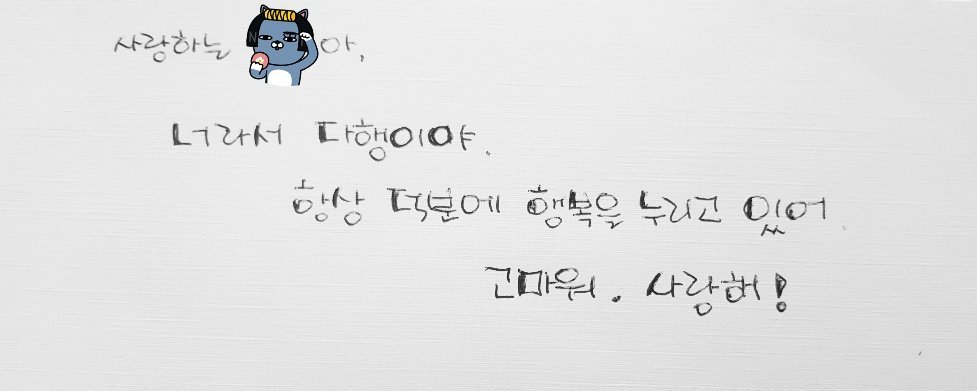 사랑하는 아,
너라서 다행이야.
항상 덕분에 행복을 누리고 있어.
고마워. 사랑해!